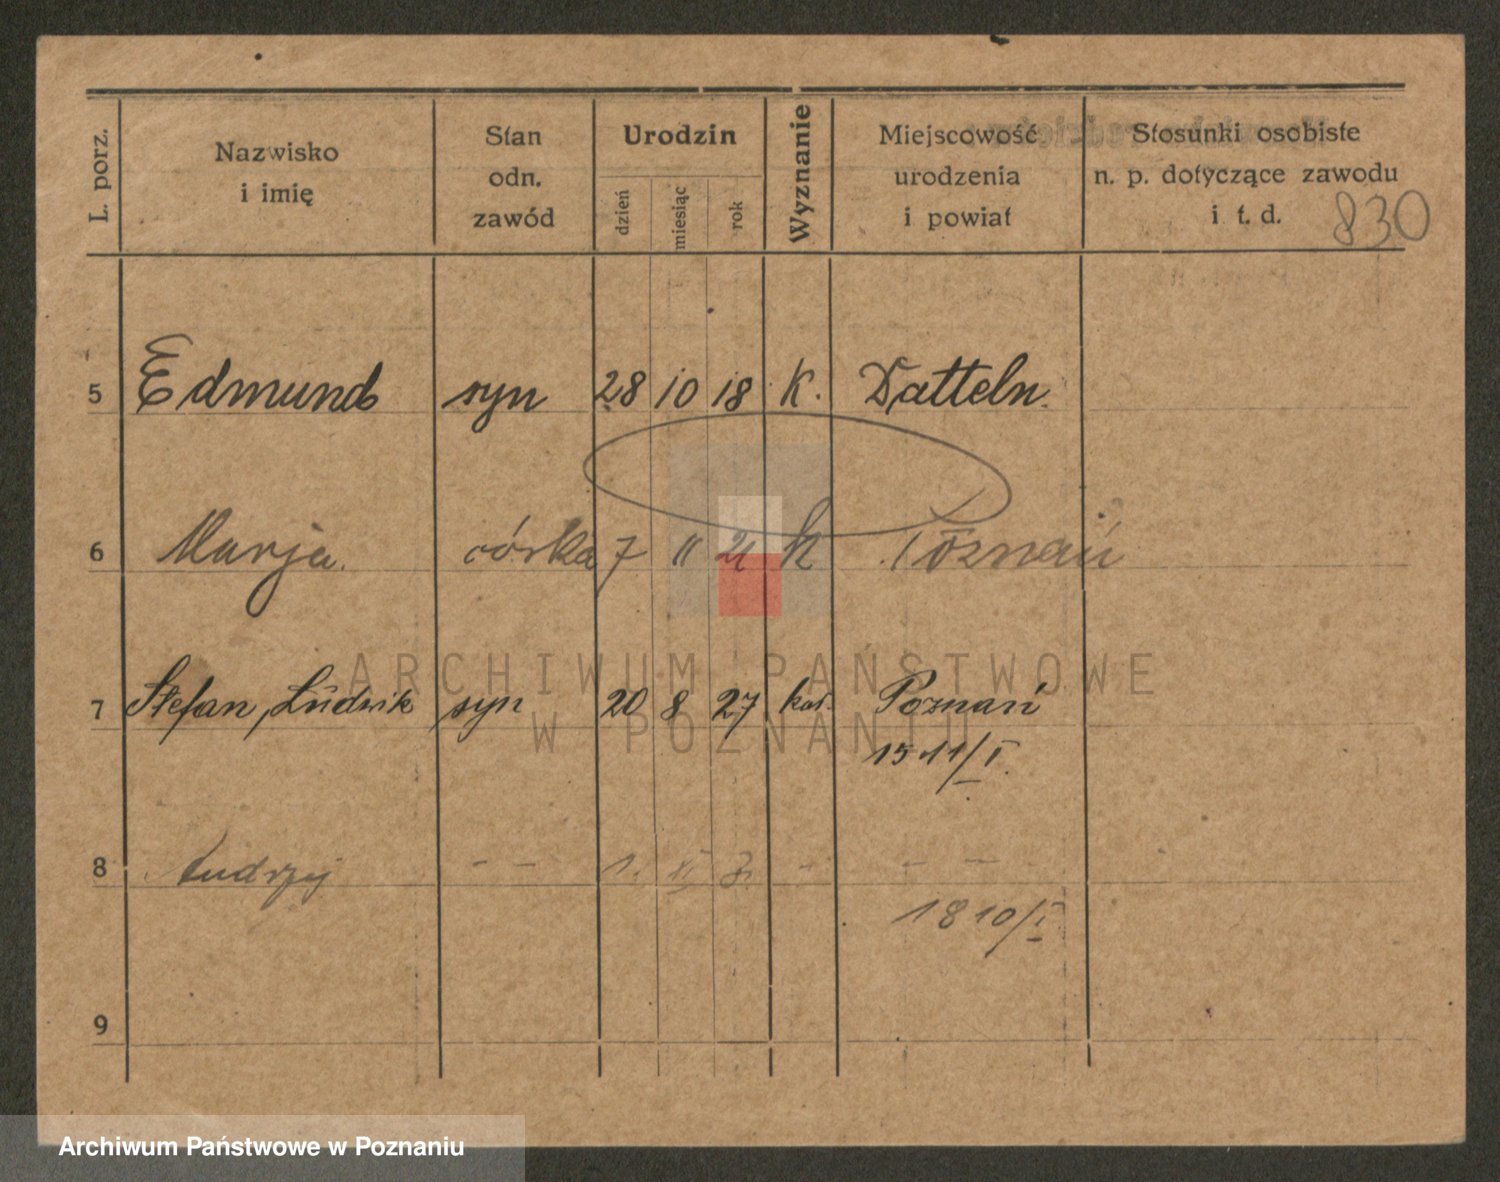 L. porz.
Nazwisko
i imię
Stan
odn.
zawód
Urodzin
dzień
miesiąc
rok
Wyznanie
Miejscowość
urodzenia
i powiat
Stosunki osobiste
n. p. dotyczące zawodu
i t. d.
830
5 Edmund syn 28 10 18 K. Datteln.
6 Marja. córka 7 11 21 K Poznań
ARCHIWUM PAŃSTWOWE
7 Stefan, Ludwik syn 20 8 27 kat. Poznań
W POZNANIU
1511/I.
8 Andrzej - - 1. XI - - -
1810/I.
9
Archiwum Państwowe w Poznaniu